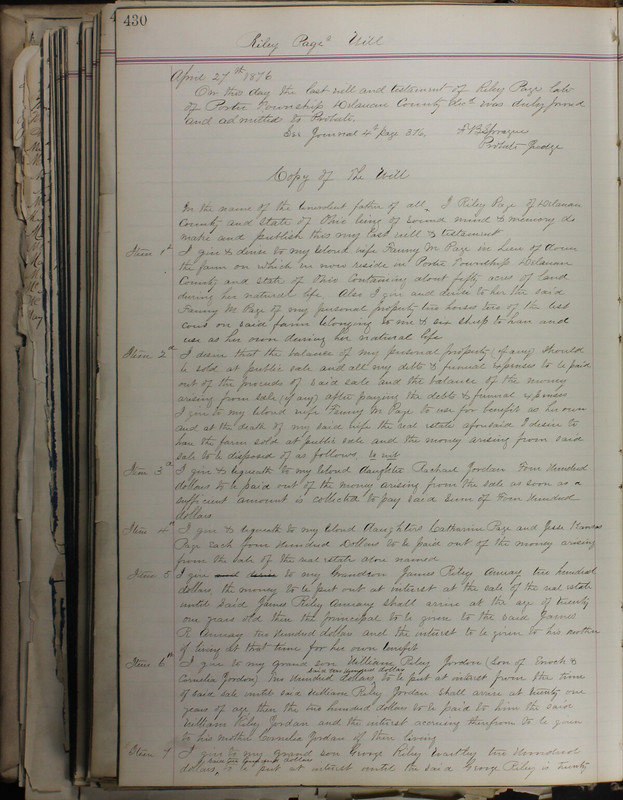 430
Riley Page's Will
April 27th 1876
On this day the last will and testament of Riley Page late
of Porter Township Delawan County Dec'd was duly proved
and admitted to Probate.
See Journal 4th page 376. F B Sprague
Probate Judge
Copy of the Will
In the name of the benevolent father of all, I Riley Page of Delawan
County and State of Ohio being of sound mind & memory do
make and publish this my last will & testament
Item 1st I give & devise to my beloved wife Fanny M. Page in lieu of dower
the farm on which we now reside in Porter Township Delawan
County and State of Ohio Containing about fifty acres of land
during her natural life. Also I give and devise to her the said
Fanny M. Page of my personal property two horses two of the best
cows on said farm belonging to me & six sheep to have and
use as her own during her natural life
Item 2nd I desire that the balance of my personal property (if any) should
be sold at public sale and all my debts & funeral expenses to be paid
out of the proceeds of said sale and the balance of the money
arising from sale (if any) after paying the debts & funeral expenses
I give to my beloved wife Fanny M Page to use for benefit as her own
and at the death of my said wife the real estate aforesaid I desire to
have the farm sold at public sale and the money arising from said
sale to be disposed of as follows to wit
Item 3d I give & bequeath to my beloved daughter Rachael Jordon Four Hundred
dollars to be paid out of the money arising from the sale as soon as a
sufficient amount is collected to pay said sum of Four Hundred
dollars
Item 4th I give & bequeath to my beloved daughters Catharine Page and
Page Each four Hundred Dollars to be paid out of the money arising
from the sale of the real estate above named
Item 5 I give and devise to my Grandson James Riley two hundred
dollars, the money to be put out at interest at the sale of the real estate
until said James Riley shall arrive at the age of twenty
one years old then the principal to be given to the said James
R. two hundred dollars and the interest to be given to his mother
if living at that time for her own benefit
Item 6th I give to my grand son William Riley Jordon (son of Enoch &
Cornelia Jordon) two Hundred dollars, said two hundred dollars to be put at interest from the time
of said sale until said William Riley Jordan shall arrive at twenty one
years of age then the two hundred dollars to be paid to him the said
William Riley Jordan and the interest accruing therefrom to be given
to his mother Cornelia Jordan if then living
Item 7 I give to my grand son George Riley two Hundred
dollars, said two hundred dollars to be put at interest until the said George Riley is twenty